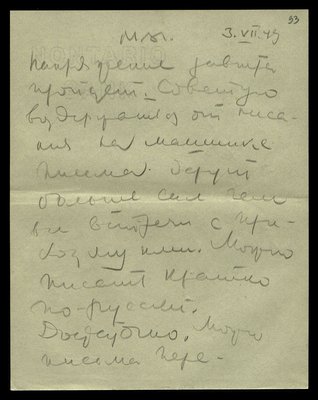 53
М.М. 3.VII.49
напряжение завтра
пройдет. Советую
воздержаться от писа-
ния на машинке
письма. Берут
больше сил чем
вы встречи с при-
Можно
писать кратко
по-русски.
Достаточно. Можно
письма пере-